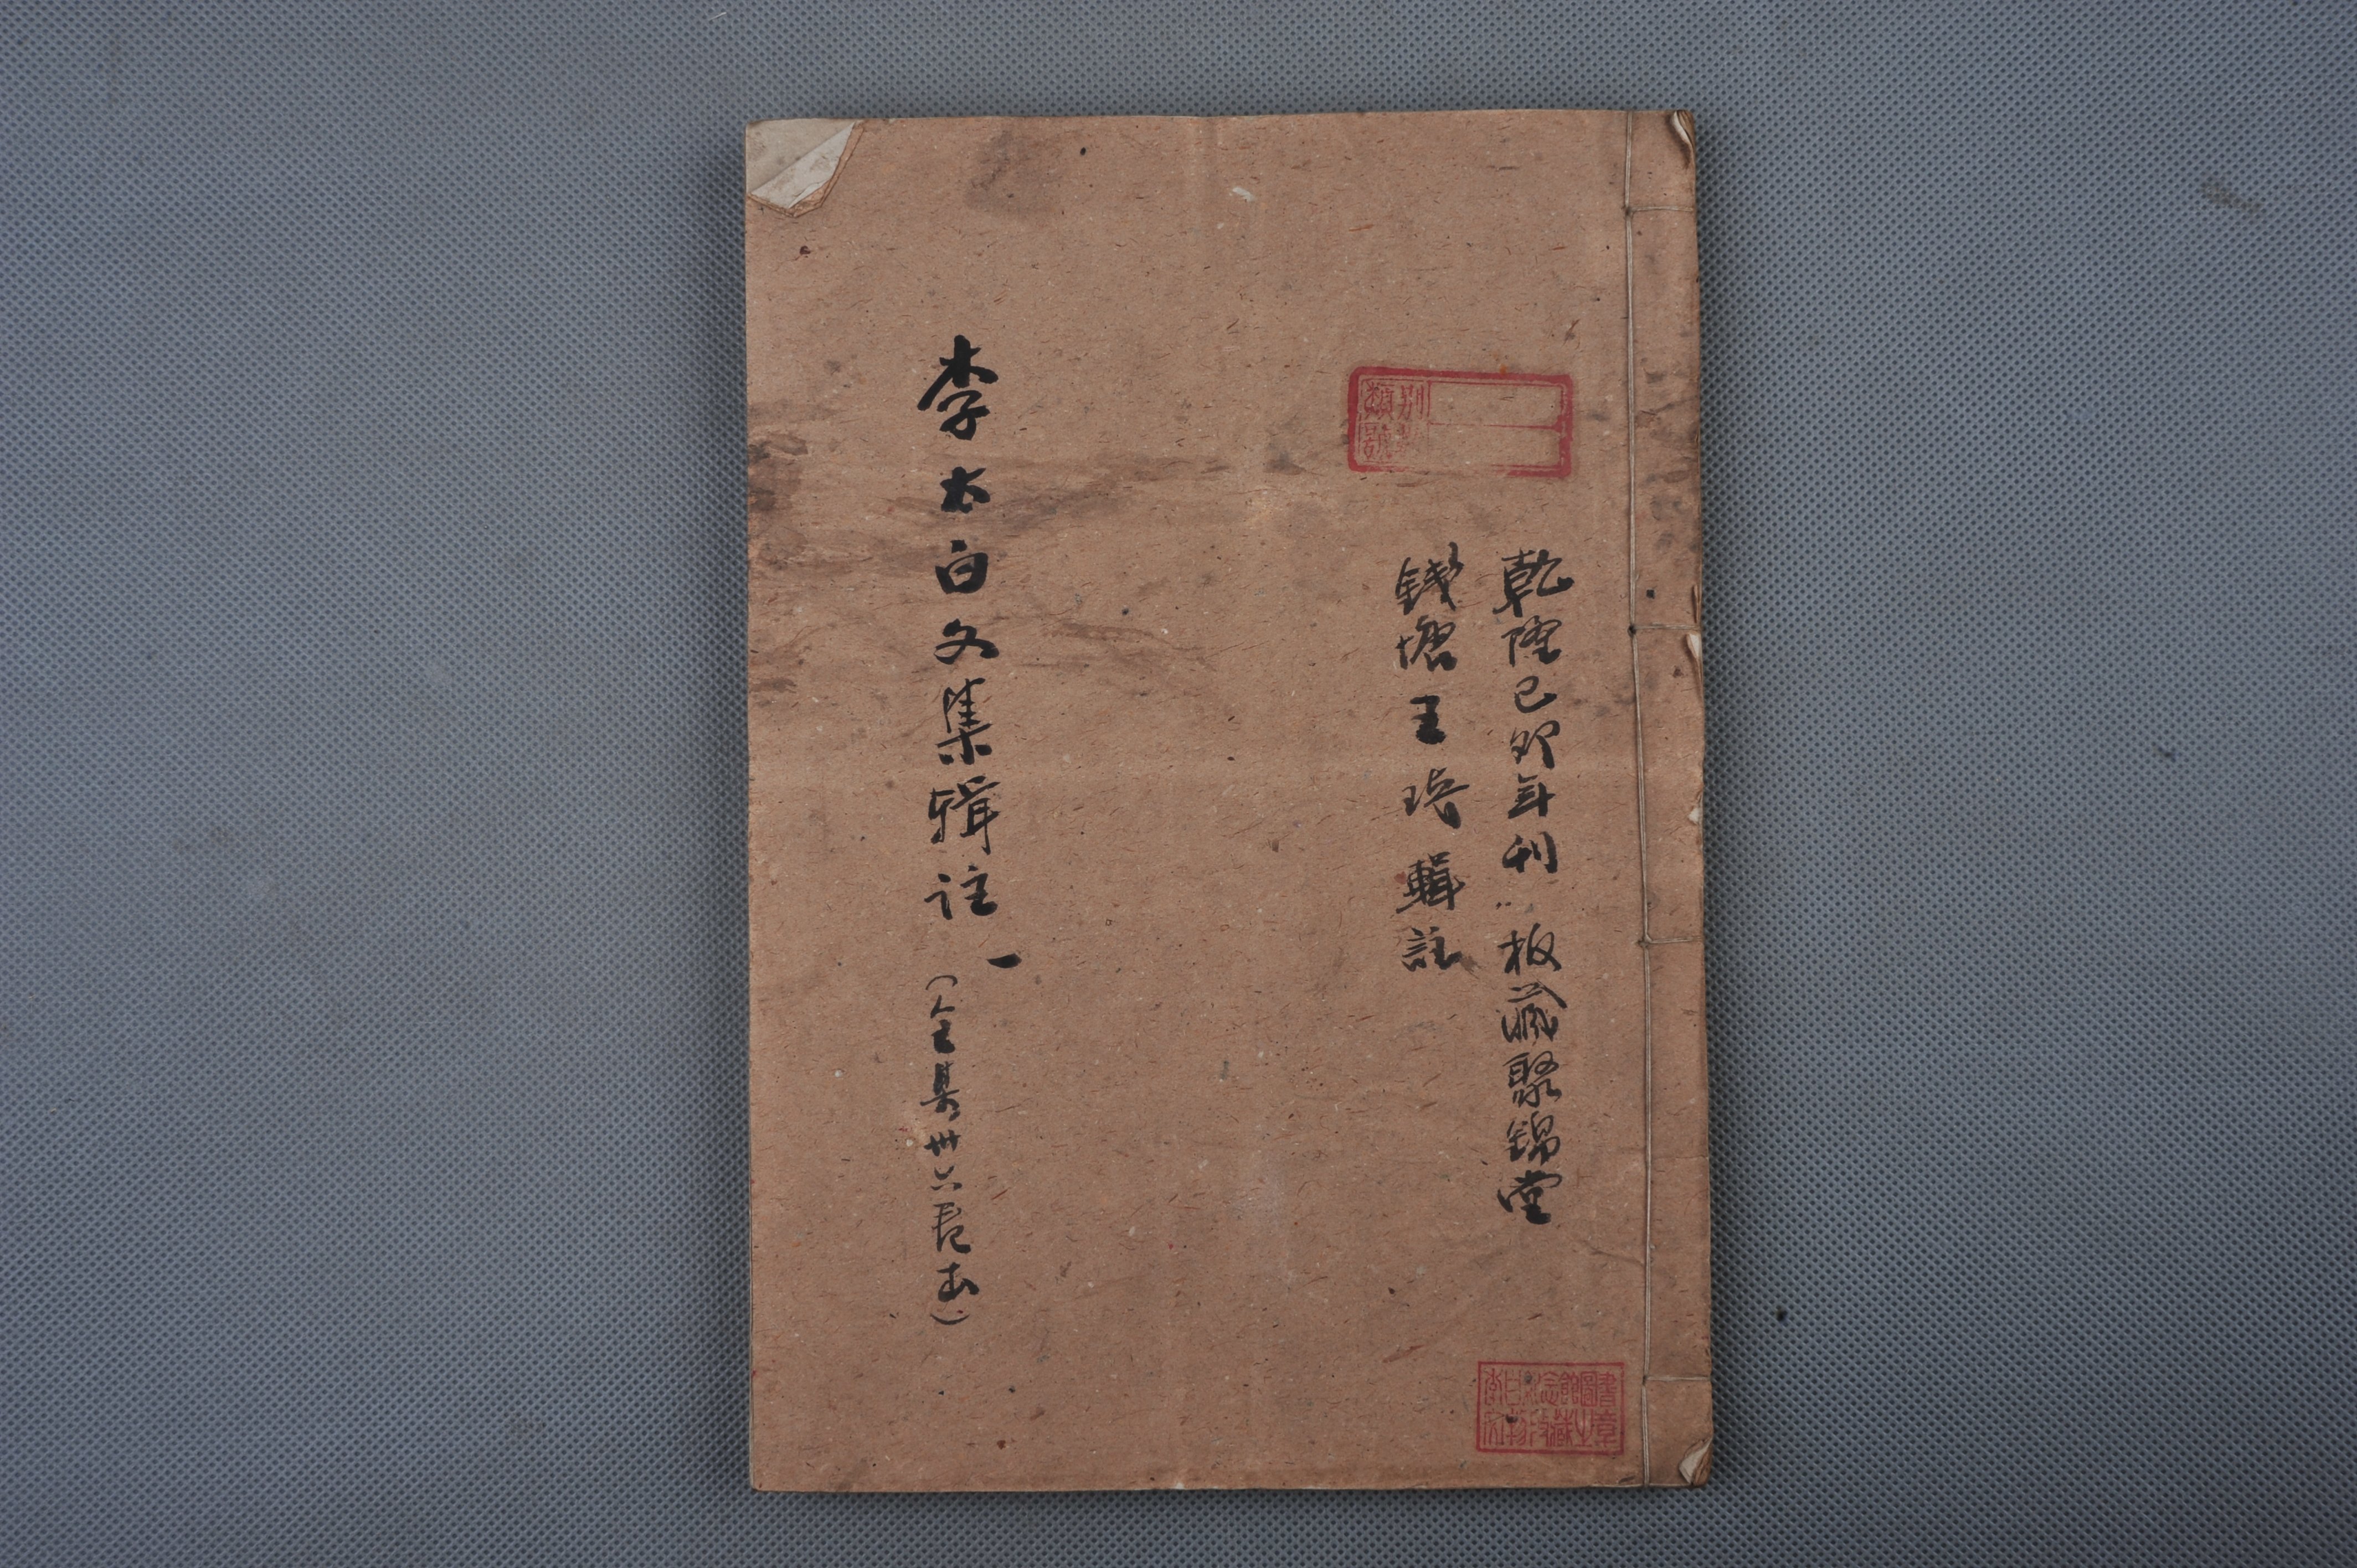 乾隆己卯年刊 板藏聚錦堂
錢塘王琦輯註
李太白文集輯註 一
(全集卅六卷本)
類別
號數
李白紀念館圖書